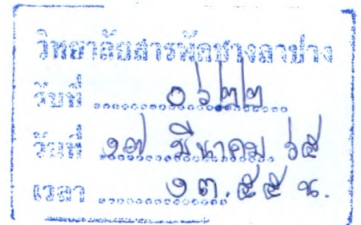 วิทยาลัยสารพัดช่างลำปาง
รับที่ ๐๖๒๒
วันที่ ๑๗ มีนาคม ๖๕
เวลา ๑๓.๕๕ น.